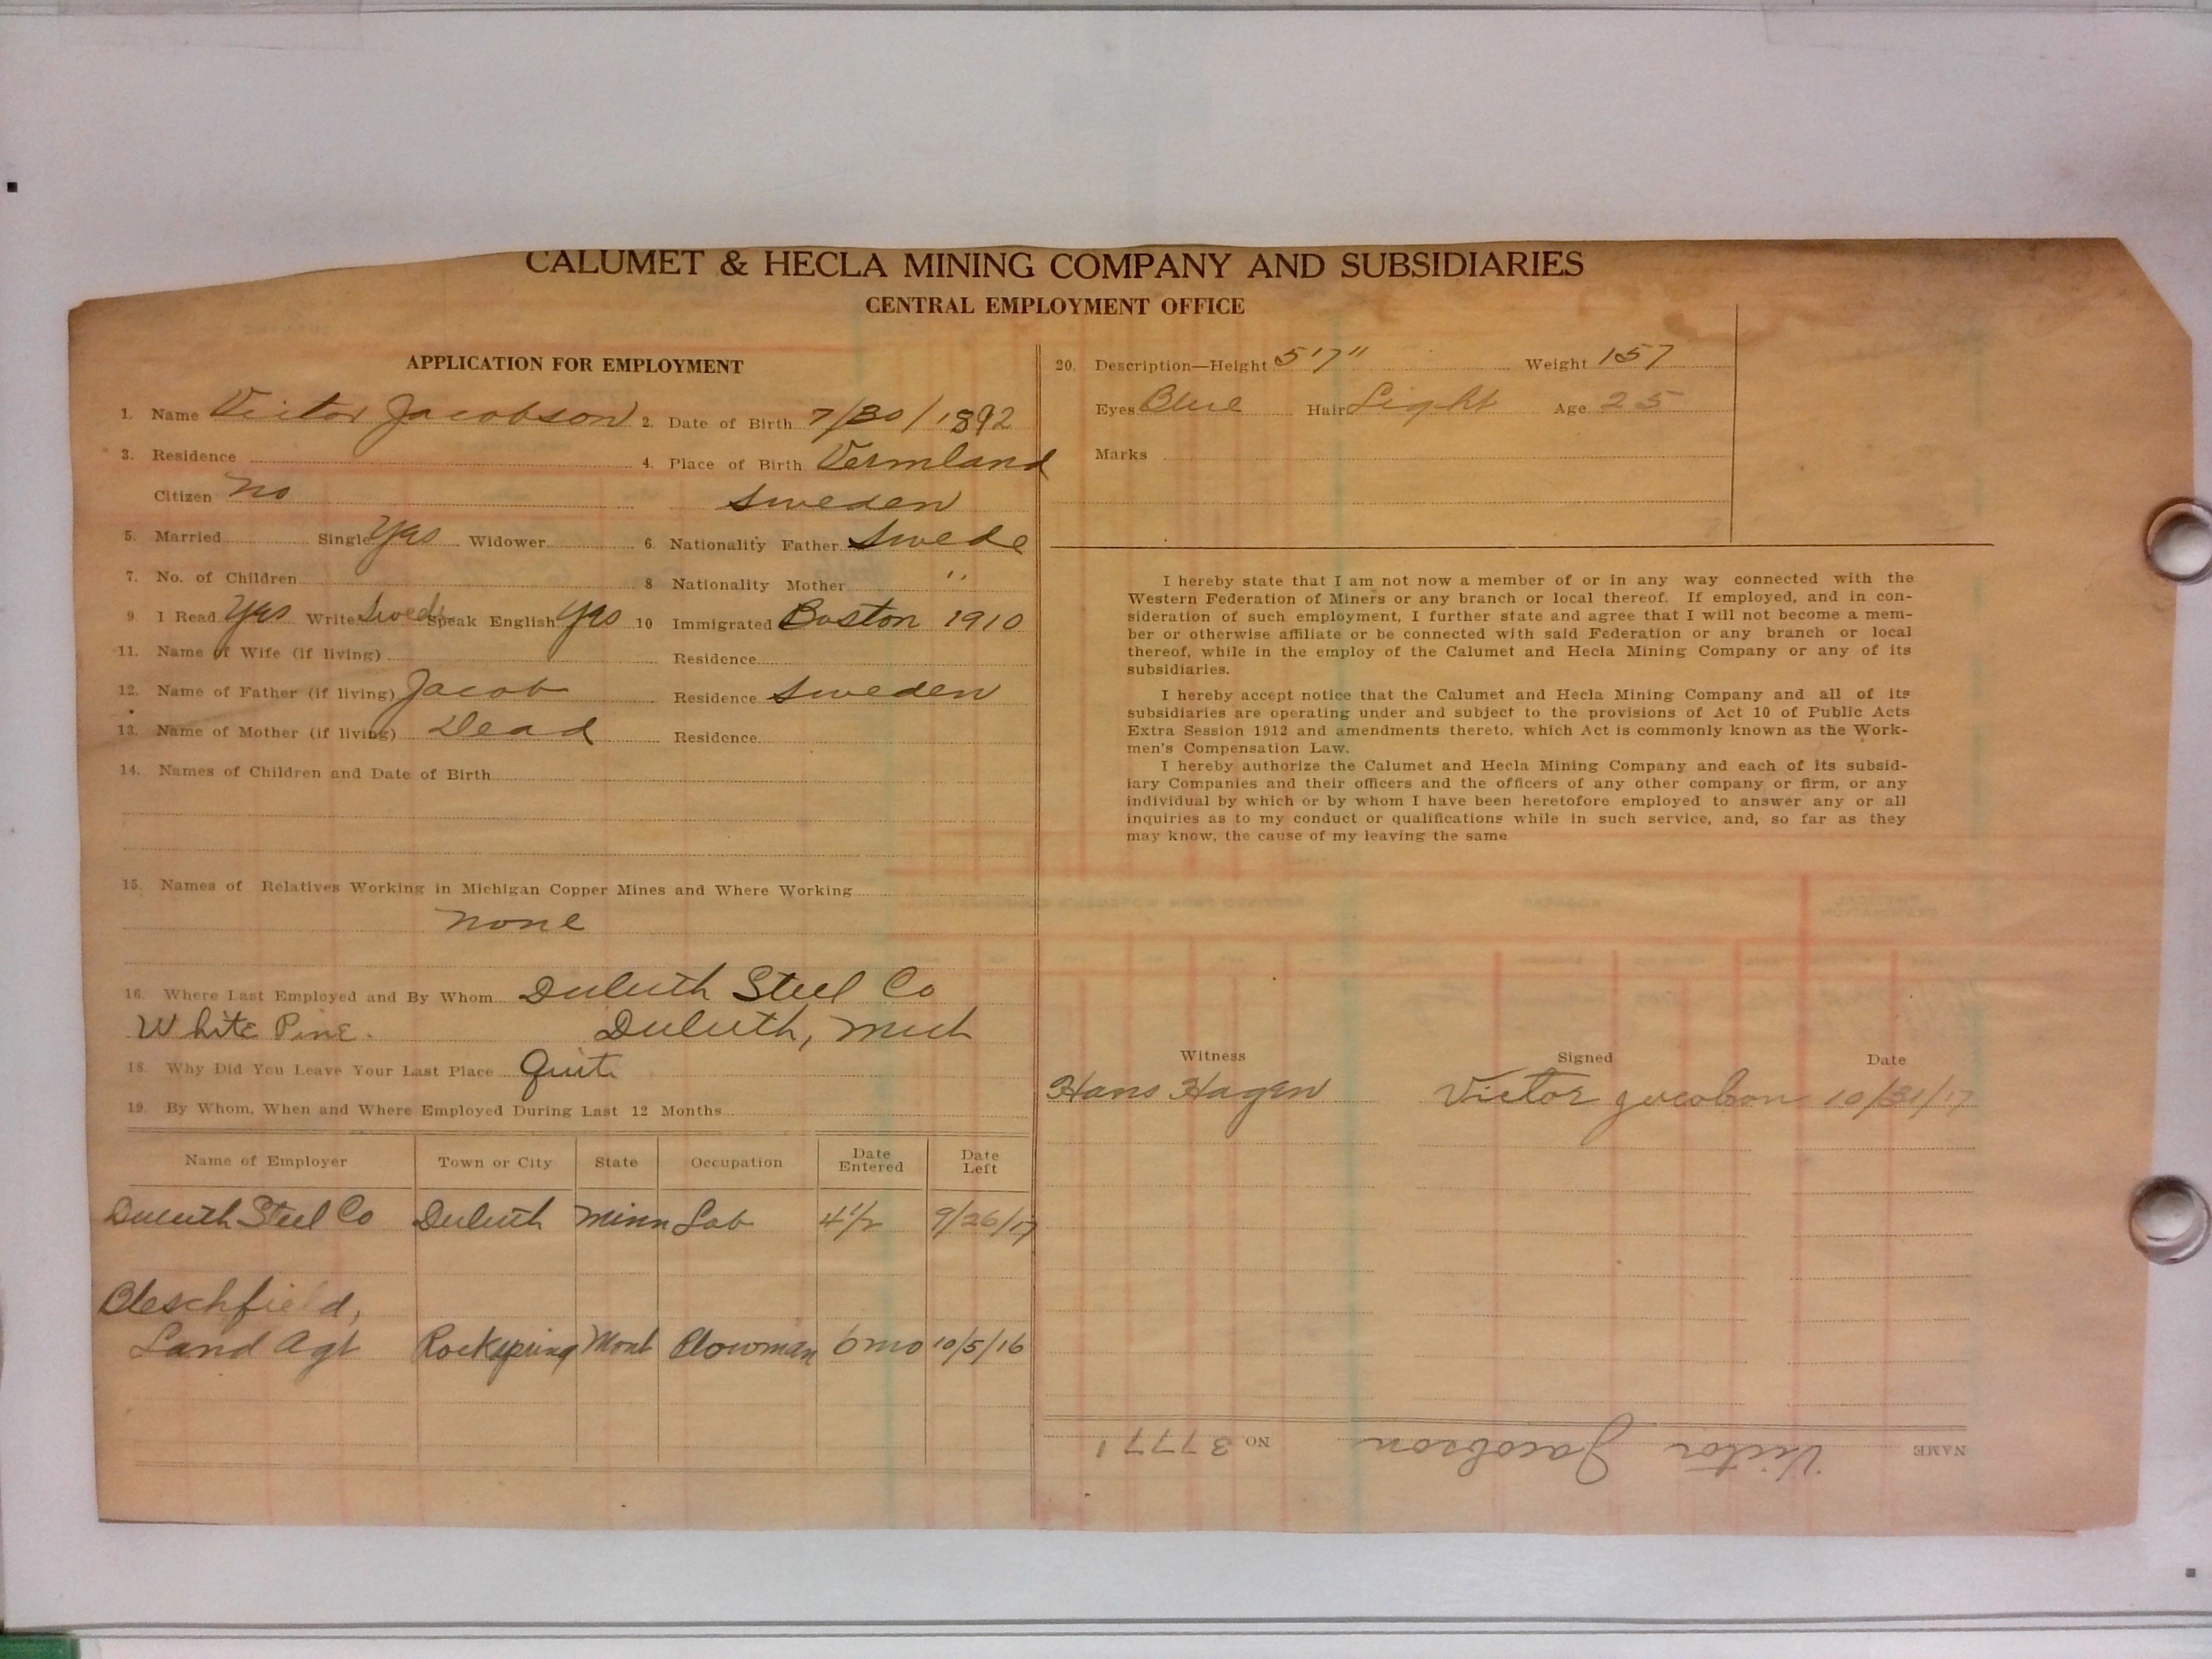 CALUMET & HECLA MINING COMPANY AND SUBSIDIARIES
CENTRAL EMPLOYMENT OFFICE
APPLICATION FOR EMPLOYMENT
1. Name Victor Jacobson 2. Date of Birth 7/30/1892
3. Residence 4. Place of Birth Vermland
Citizen no Sweden
5. Married Single Yes Widower 6. Nationality Father Swede
7. No. of Children 8 Nationality Mother "
9. I Read Yes Write Swed. Speak English Yes 10 Immigrated Boston 1910
11. Name of Wife (if living) Residence
12. Name of Father (if living) Jacob Residence Sweden
13. Name of Mother (if living) Dead Residence
14. Names of Children and Date of Birth
15. Names of Relatives Working in Michigan Copper Mines and Where Working
none
16. Where Last Employed and By Whom Duluth Steel Co
White Pine. Duluth, Mich
18. Why Did You Leave Your Last Place Quit
19. By Whom, When and Where Employed During Last 12 Months
Name of Employer Town or City State Occupation Date Entered Date Left
Duluth Steel Co Duluth Minn Lab 4 1/2 9/26/17
Land Agt Rockspring Mont Plowman 6 mo 10/5/16
20. Description—Height 5'7" Weight 157
Eyes Blue Hair Light Age 25
Marks
I hereby state that I am not now a member of or in any way connected with the
Western Federation of Miners or any branch or local thereof. If employed, and in con-
sideration of such employment, I further state and agree that I will not become a mem-
ber or otherwise affiliate or be connected with said Federation or any branch or local
thereof, while in the employ of the Calumet and Hecla Mining Company or any of its
subsidiaries.
I hereby accept notice that the Calumet and Hecla Mining Company and all of its
subsidiaries are operating under and subject to the provisions of Act 10 of Public Acts
Extra Session 1912 and amendments thereto, which Act is commonly known as the Work-
men's Compensation Law.
I hereby authorize the Calumet and Hecla Mining Company and each of its subsid-
iary Companies and their officers and the officers of any other company or firm, or any
individual by which or by whom I have been heretofore employed to answer any or all
inquiries as to my conduct or qualifications while in such service, and, so far as they
may know, the cause of my leaving the same
Witness Signed Date
Hans Hagen Victor jacobson 10/31/17
NAME Victor Jacobson NO 37771